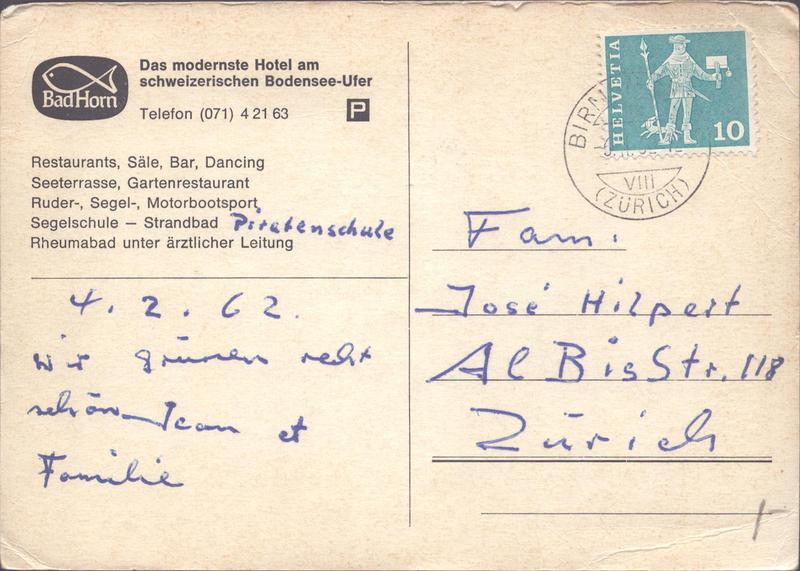 Das modernste Hotel am
schweizerischen Bodensee-Ufer
Bad Horn
Telefon (071) 4 21 63 P
Restaurants, Säle, Bar, Dancing
Seeterrasse, Gartenrestaurant
Ruder-, Segel-, Motorbootsport
Segelschule – Strandbad Piratenschule
Rheumabad unter ärztlicher Leitung
4. 2. 62.
wir grünen recht
schön Jean et
Familie
HELVETIA
10
BIRM
VIII
(ZÜRICH)
Fam.
José Hilpert
Al Bis Str. 118
Zürich